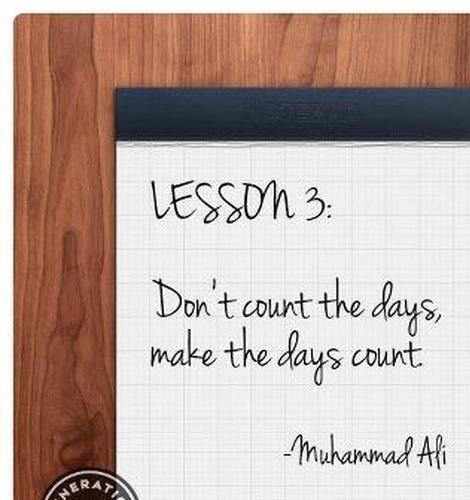 LESSON 3:
Don't count the days,
make the days count.
-Muhammad Ali